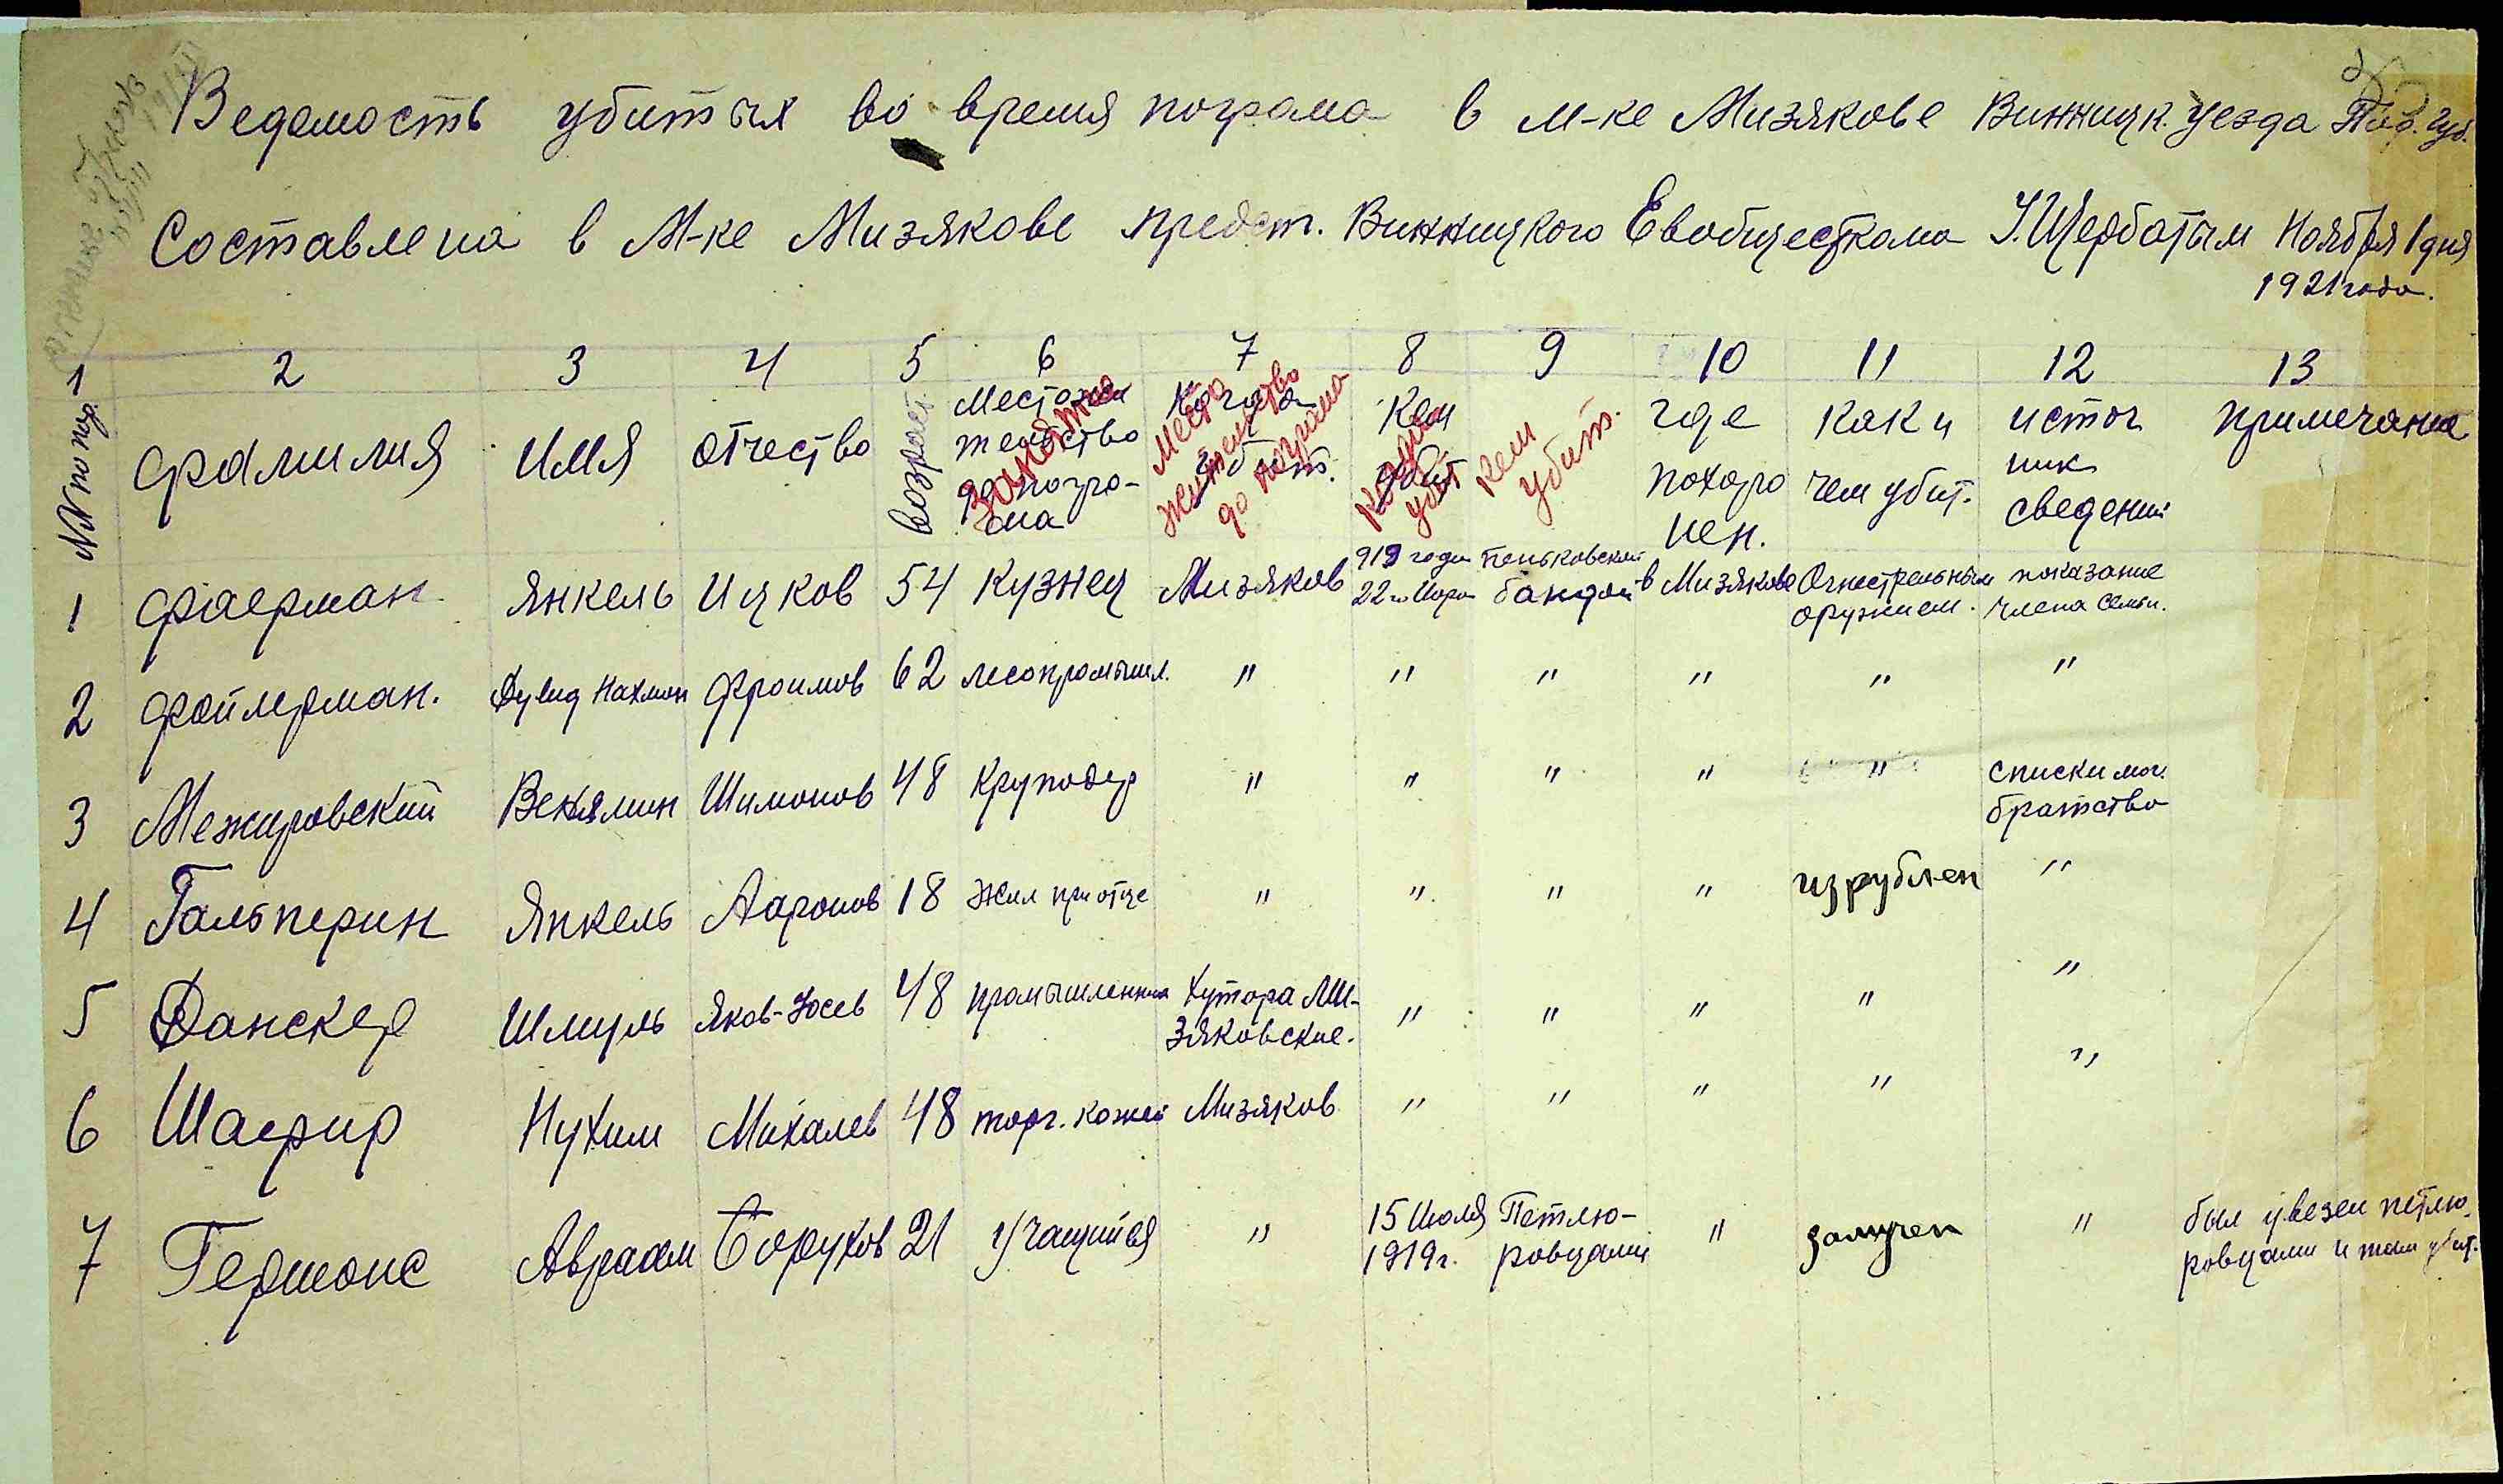 Ведомость убитых во время пограма в м-ке Мизякове Винницк. уезда Под. губ.
Составлена в М-ке Мизякове предст. Винницкого Евобщесткома У. Щербатым Ноября 1 дня
1921 года.
1 2 3 4 5 6 7 8 9 10 11 12 13
NN по пор. фамилия имя отчество возраст. Местожи тельство до погро- ма Когда убит. Кем убит где похоро нен. как и чем убит. источ ник сведений примечание
занятие Место жительство до пограма Когда убит кем убит.
1 Фаерман Янкель Ицков 54 Кузнец Мизяков 919 года 22го Мая Пеньковской бандой в Мизякове Огнестрельным оружием. показание члена семьи.
2 Фойлерман. Дувид Нахман Фроимов 62 лесопромышл. " " " " " "
3 Межировский Венямин Шимонов 48 Круподер " " " " " списки мог. братства
4 Гальперин Янкель Ааронов 18 Жил при отце " " " " изрублен "
5 Данскер Шмуль Яков-Иосев 48 промышленник Хутора Ми- зяковские. " " " " "
6 Шафир Нухим Михалев 48 торг. кожей Мизяков " " " " "
7 Гермонс Авраам Борухов 21 Учащийся " 15 Июля 1919 г. Петлю- ровцами " замучен " был увезен петлю- ровцами и там убит.